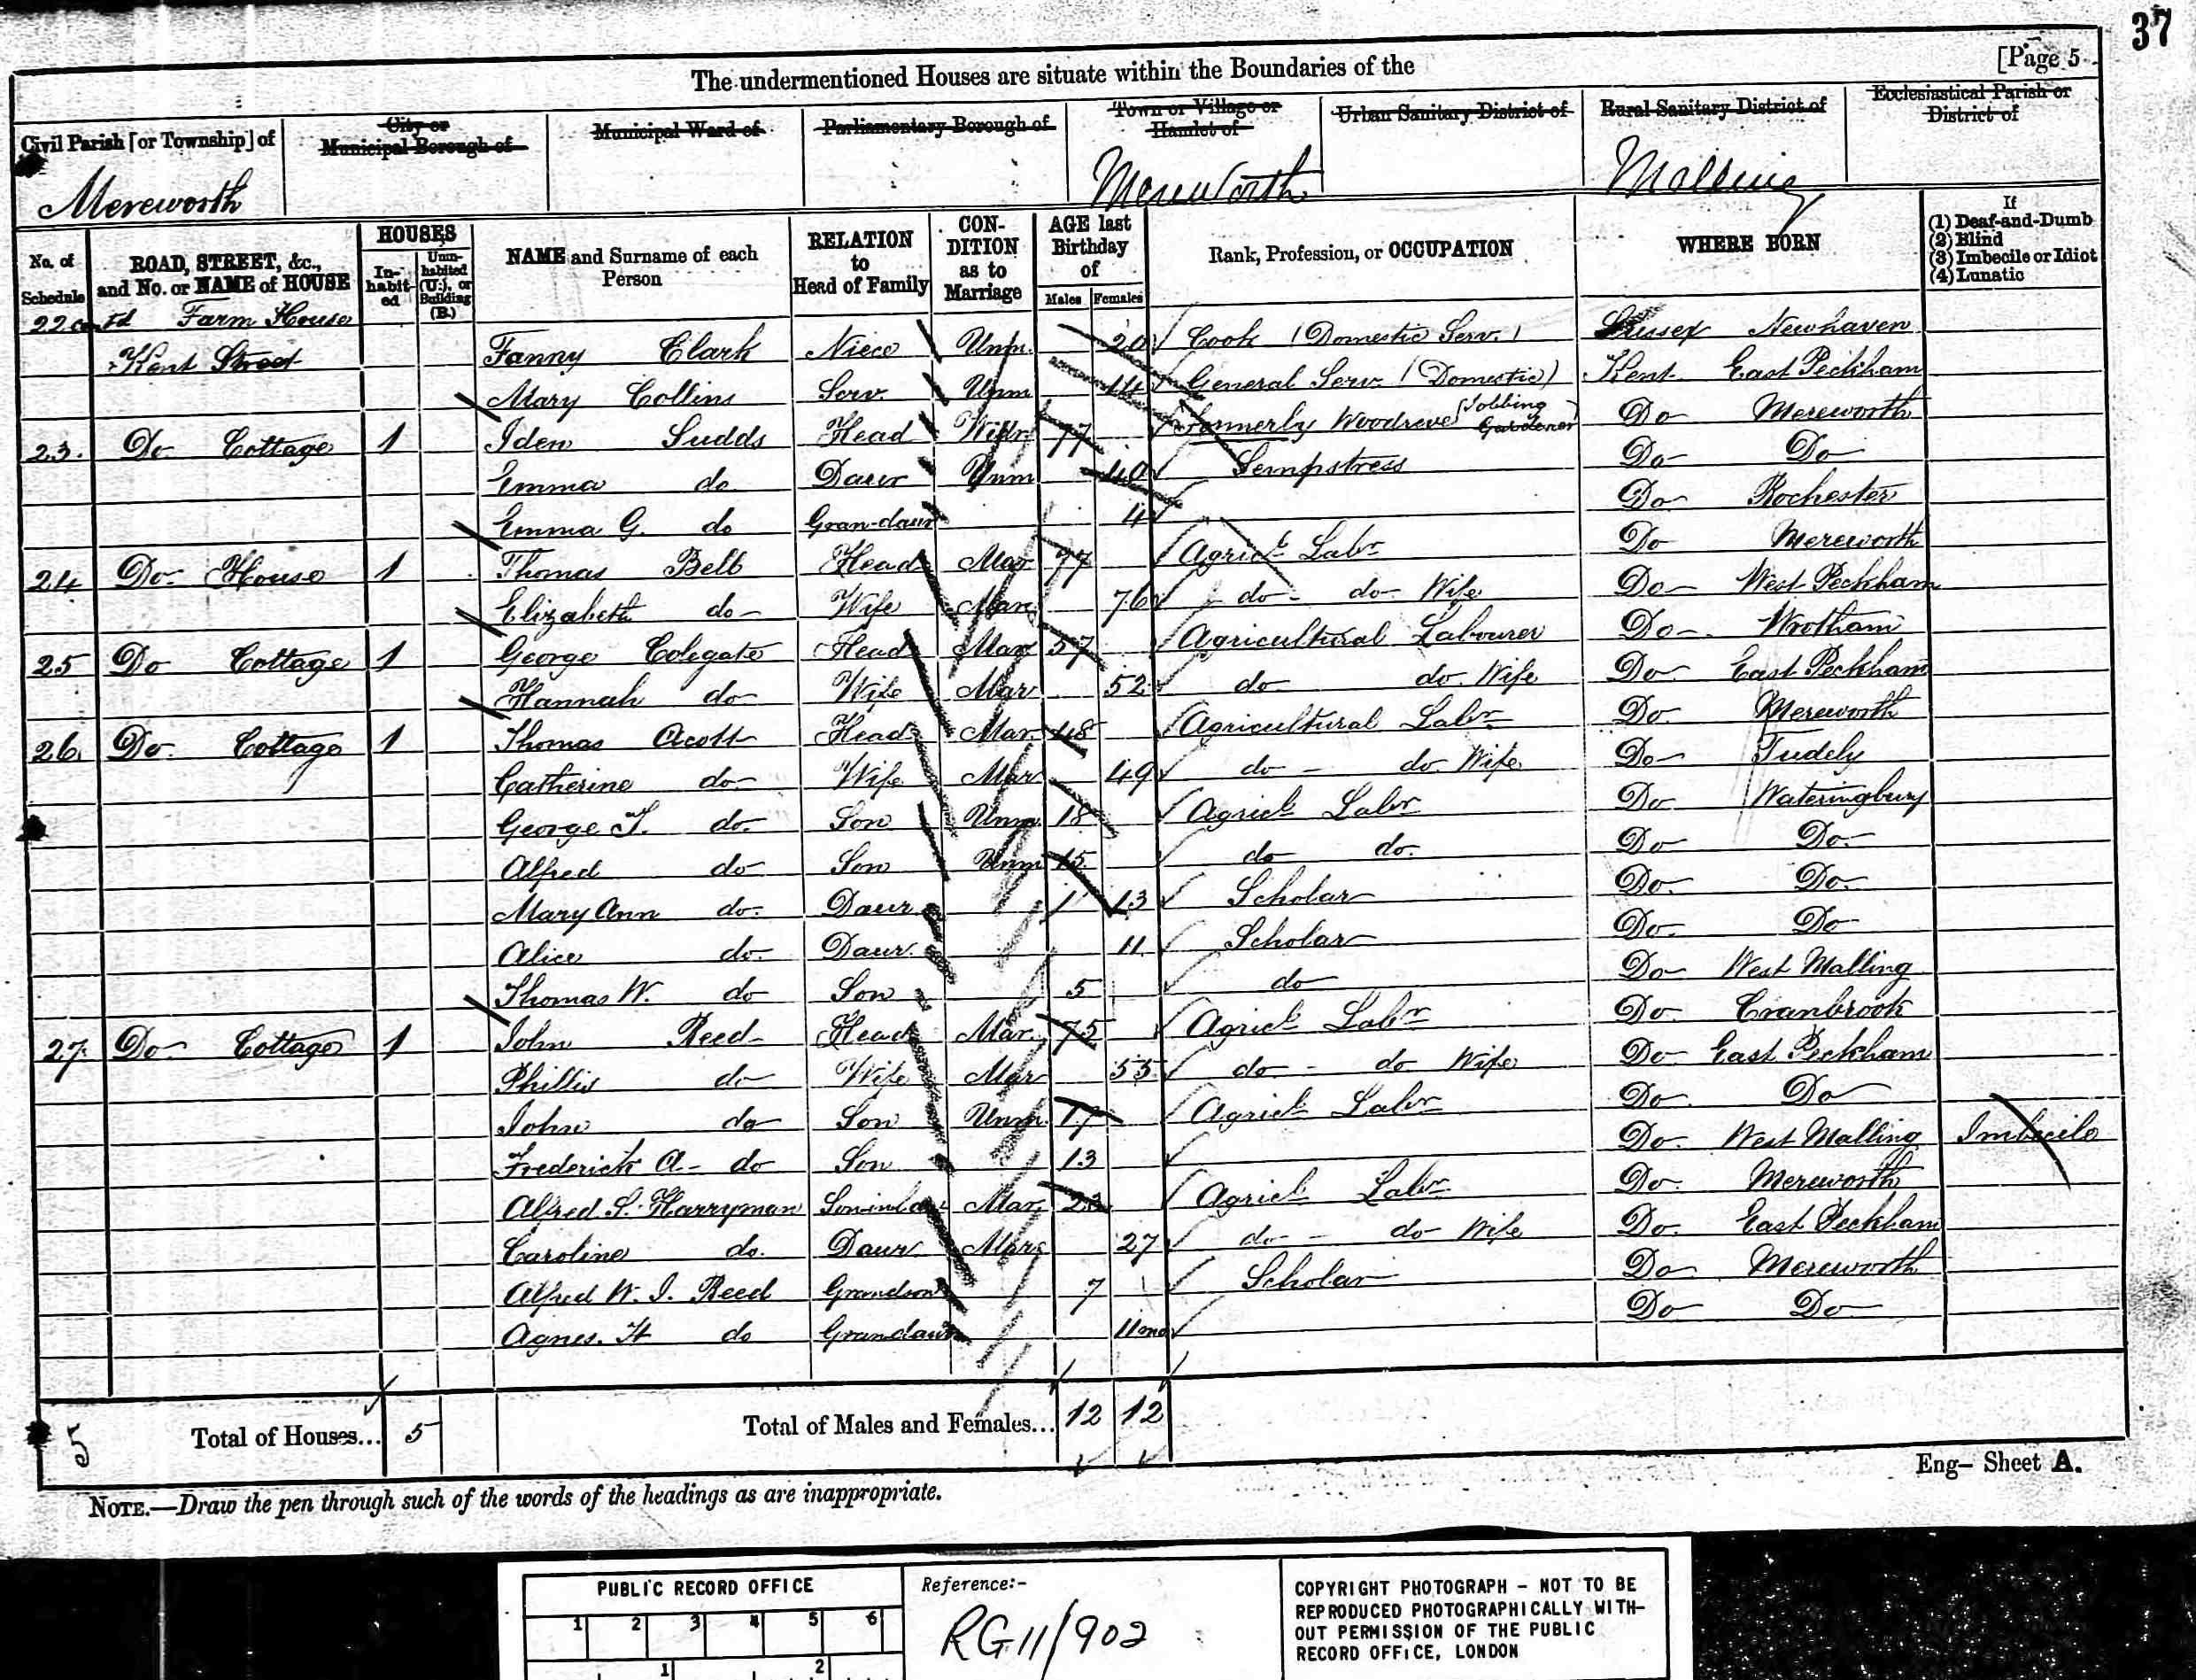 37
The undermentioned Houses are situate within the Boundaries of the
[Page 5
Civil Parish [or Township] of
City or Municipal Borough of
Municipal Ward of
Parliamentary Borough of
Town or Village or Hamlet of
Urban Sanitary District of
Rural Sanitary District of
Ecclesiastical Parish or District of
Mereworth Mereworth Malling
No. of Schedule
ROAD, STREET, &c., and No. or NAME of HOUSE
HOUSES
In-habit-ed
Unin-habited (U.), or Building (B.)
NAME and Surname of each Person
RELATION to Head of Family
CON-DITION as to Marriage
AGE last Birthday of
Males Females
Rank, Profession, or OCCUPATION
WHERE BORN
If
(1) Deaf-and-Dumb
(2) Blind
(3) Imbecile or Idiot
(4) Lunatic
22 contd Farm House
Kent Street Fanny Clark Niece Unm. 20 Cook (Domestic Serv.) Sussex Newhaven
Mary Collins Serv. Unm 14 General Serv. (Domestic) Kent East Peckham
23. Do Cottage 1 Iden Sudds Head Widr 77 Formerly Woodreve (Jobbing Gardener) Do Mereworth
Emma do Daur Unm 40 Sempstress Do Do
Emma G. do Gran-daur 4 Do Rochester
24 Do House 1 Thomas Bell Head Mar 77 Agricl Labr Do Mereworth
Elizabeth do Wife Mar 76 do do Wife Do West Peckham
25 Do Cottage 1 George Colegate Head Mar 57 Agricultural Labourer Do Wrotham
Hannah do Wife Mar 52 do do Wife Do East Peckham
26. Do Cottage 1 Thomas Acott Head Mar. 48 Agricultural Labr Do Mereworth
Catherine do Wife Mar 49 do do Wife Do Tudely
George T. do. Son Unm. 18 Agricl Labr Do Wateringbury
Alfred do Son Unm 15 do do. Do Do
Mary Ann do. Daur 13 Scholar Do. Do
Alice do. Daur. 11 Scholar Do. Do
Thomas W. do Son 5 do Do West Malling
27. Do Cottage 1 John Reed Head Mar. 75 Agricl Labr Do Cranbrook
Phillis do Wife Mar 55 do do Wife Do East Peckham
John do Son Unm. 17 Agricl Labr Do. Do
Frederick A. do Son 13 Do. West Malling Imbecile
Alfred S. Harryman Son in law Mar. 23 Agricl Labr Do. Mereworth
Caroline do. Daur Mar. 27 do do Wife Do. East Peckham
Alfred W. J. Reed Grandson 7 Scholar Do Mereworth
Agnes. H do Grandaur 11 mo Do Do
5 Total of Houses... 5 Total of Males and Females... 12 12
Eng— Sheet A.
NOTE.—Draw the pen through such of the words of the headings as are inappropriate.
PUBLIC RECORD OFFICE
1 2 3 4 5 6
1 2
Reference:-
RG 11/902
COPYRIGHT PHOTOGRAPH - NOT TO BE
REPRODUCED PHOTOGRAPHICALLY WITH-
OUT PERMISSION OF THE PUBLIC
RECORD OFFICE, LONDON